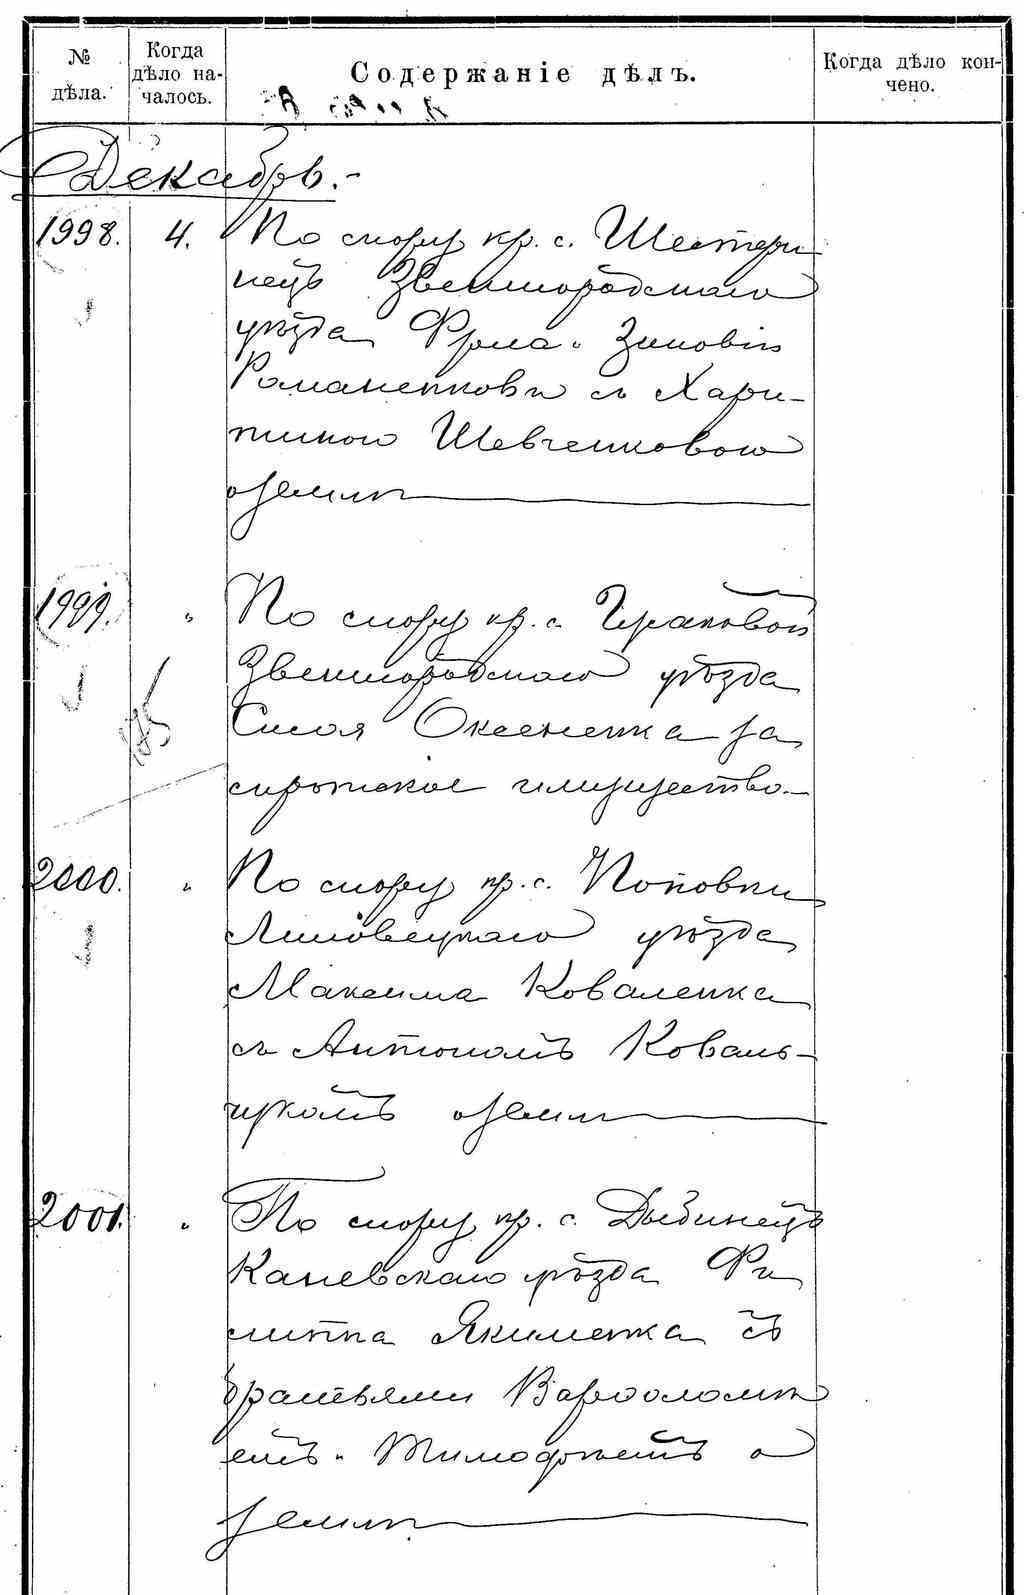 № дѣла.
Когда дѣло началось.
Содержаніе дѣлъ.
Когда дѣло кончено.
Декабрь.-
1998. 4. По спору кр. с. Шестери
нецъ Звенигородскаго
уѣзда Фрола и Зиновія
Романенковъ съ Хари-
тиною Шевченковою
о землѣ
1999. " По спору кр. с.
Звенигородскаго уѣзда
Сысоя Оксененка за
сиротское имущество.-
2000. " По спору кр. с. Поповки
Липовецкаго уѣзда
Максима Коваленка
съ Антономъ Коваль-
чукомъ о землѣ
2001. " По спору кр. с. Дыбинецъ
Каневскаго уѣзда Фи
липпа Якименка съ
братьями Варфоломѣ
емъ и Тимофѣемъ о
землѣ